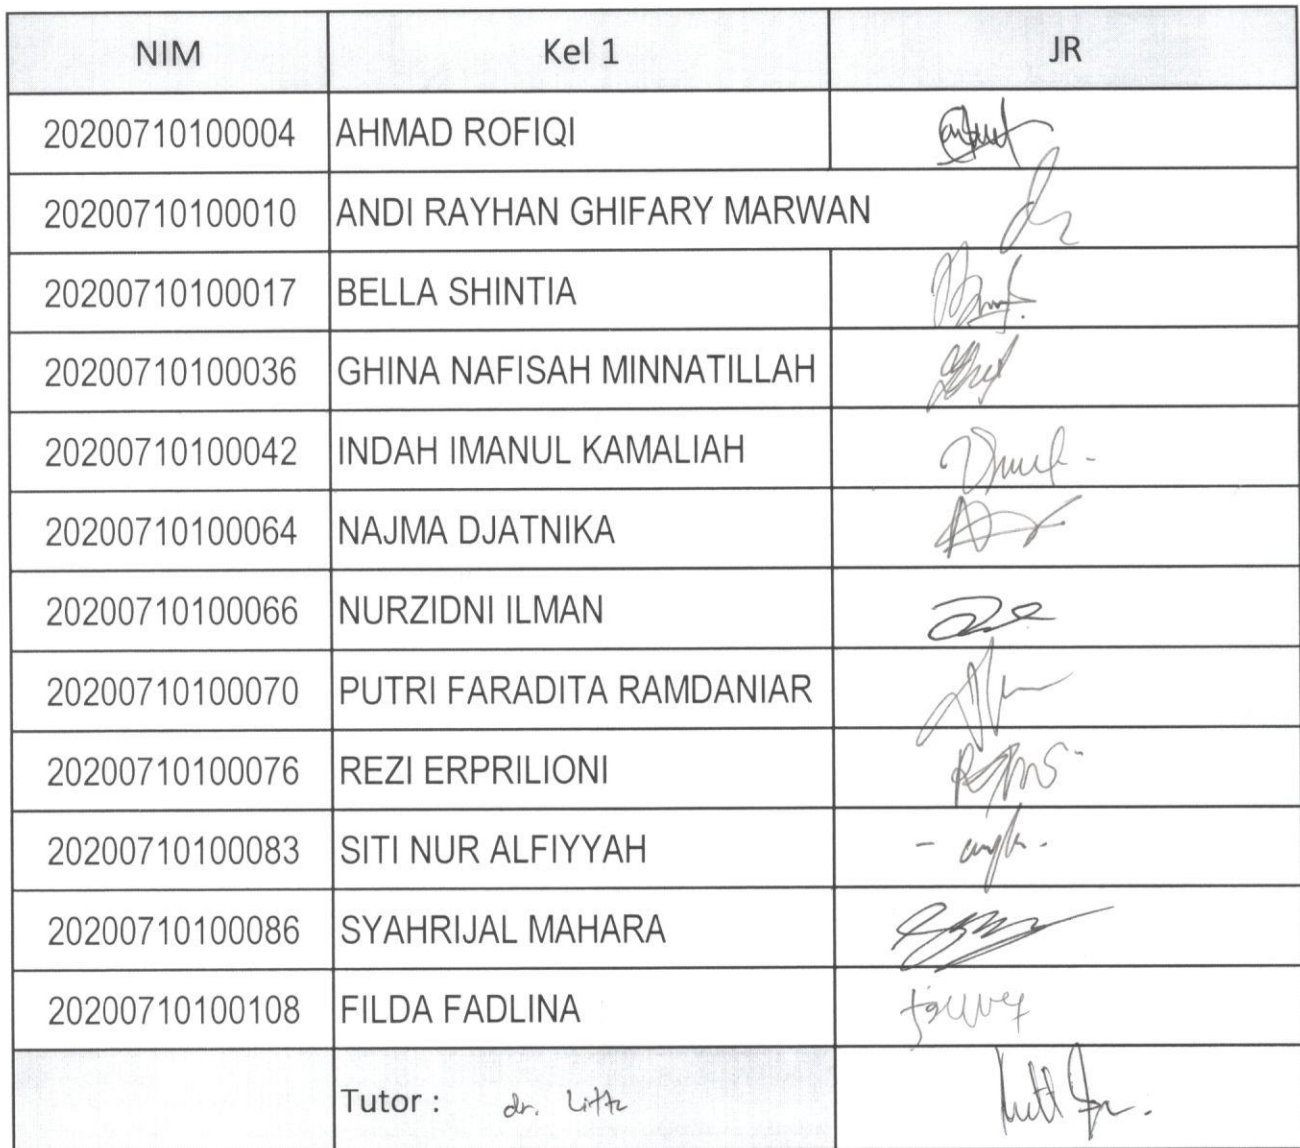 NIM Kel 1 JR
20200710100004 AHMAD ROFIQI
20200710100010 ANDI RAYHAN GHIFARY MARWAN
20200710100017 BELLA SHINTIA
20200710100036 GHINA NAFISAH MINNATILLAH
20200710100042 INDAH IMANUL KAMALIAH
20200710100064 NAJMA DJATNIKA
20200710100066 NURZIDNI ILMAN
20200710100070 PUTRI FARADITA RAMDANIAR
20200710100076 REZI ERPRILIONI
20200710100083 SITI NUR ALFIYYAH
20200710100086 SYAHRIJAL MAHARA
20200710100108 FILDA FADLINA
Tutor : dr.